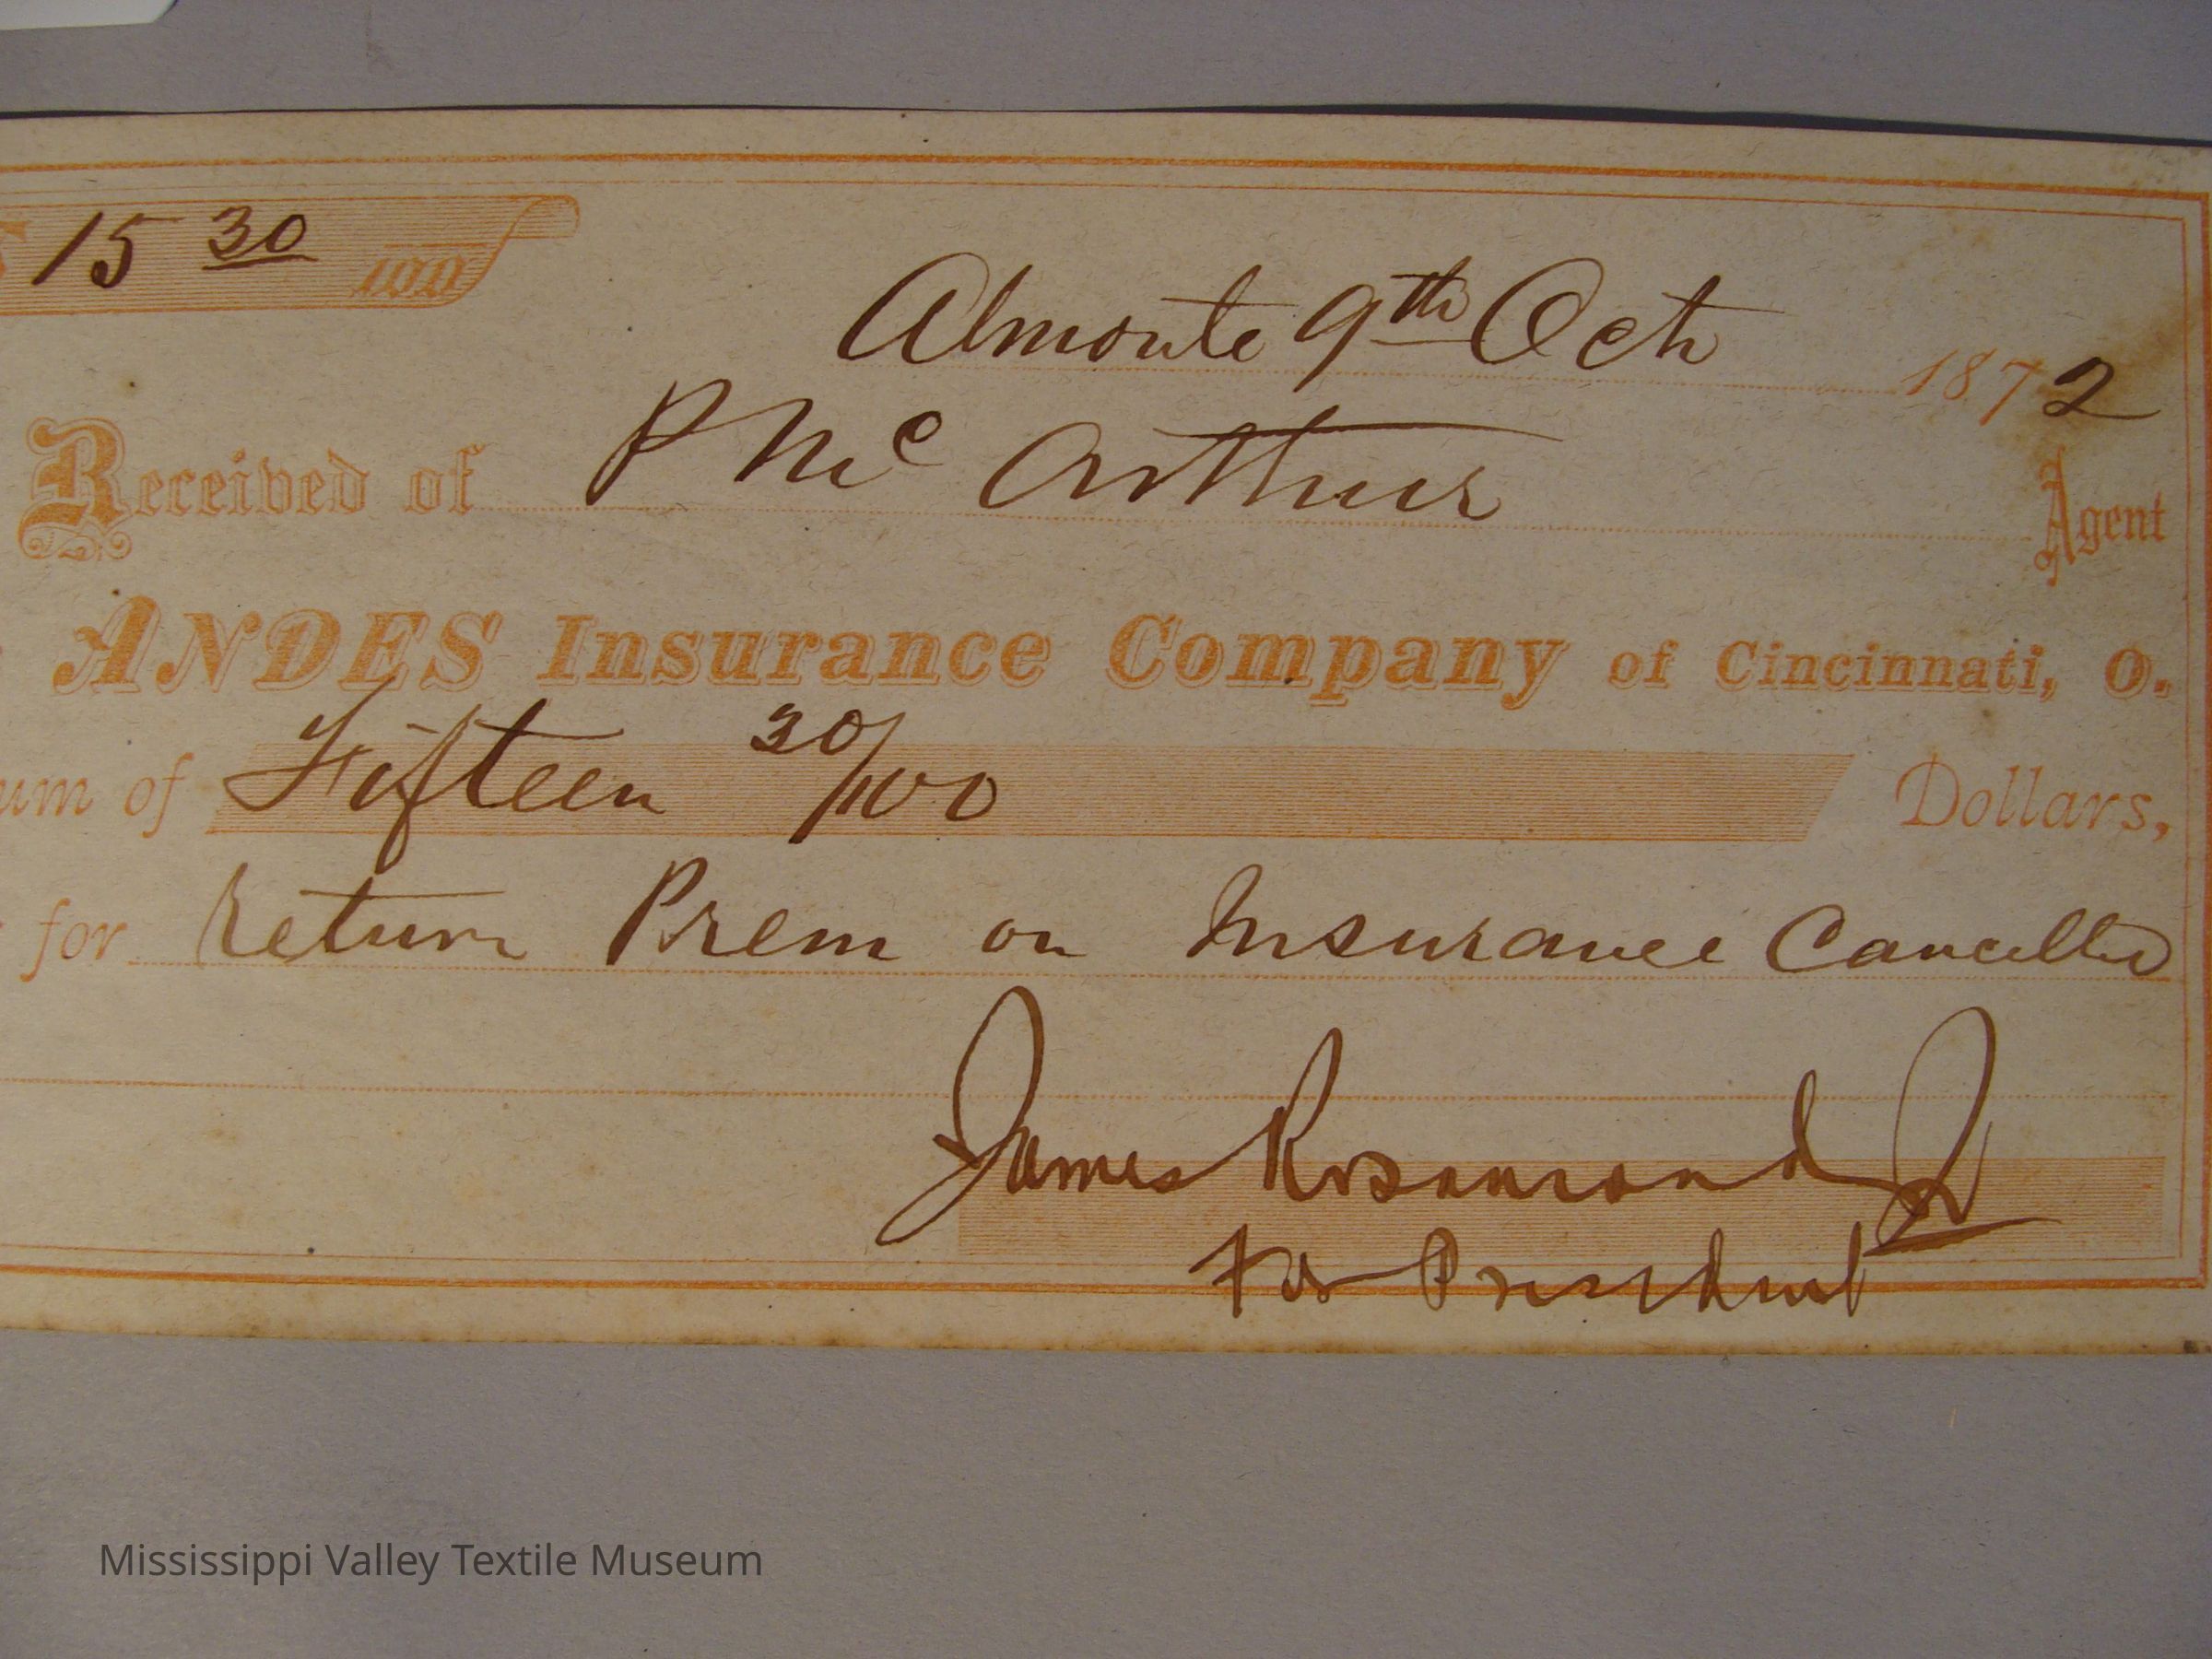 $ 15 30/100
Almonte 9th Oct 1872
Received of P Mc Arthur Agent
ANDES Insurance Company of Cincinnati, O.
um of Fifteen 30/100 Dollars,
for Return Prem on Insurance Cancelled
James Rosamond Jr
For President
Mississippi Valley Textile Museum